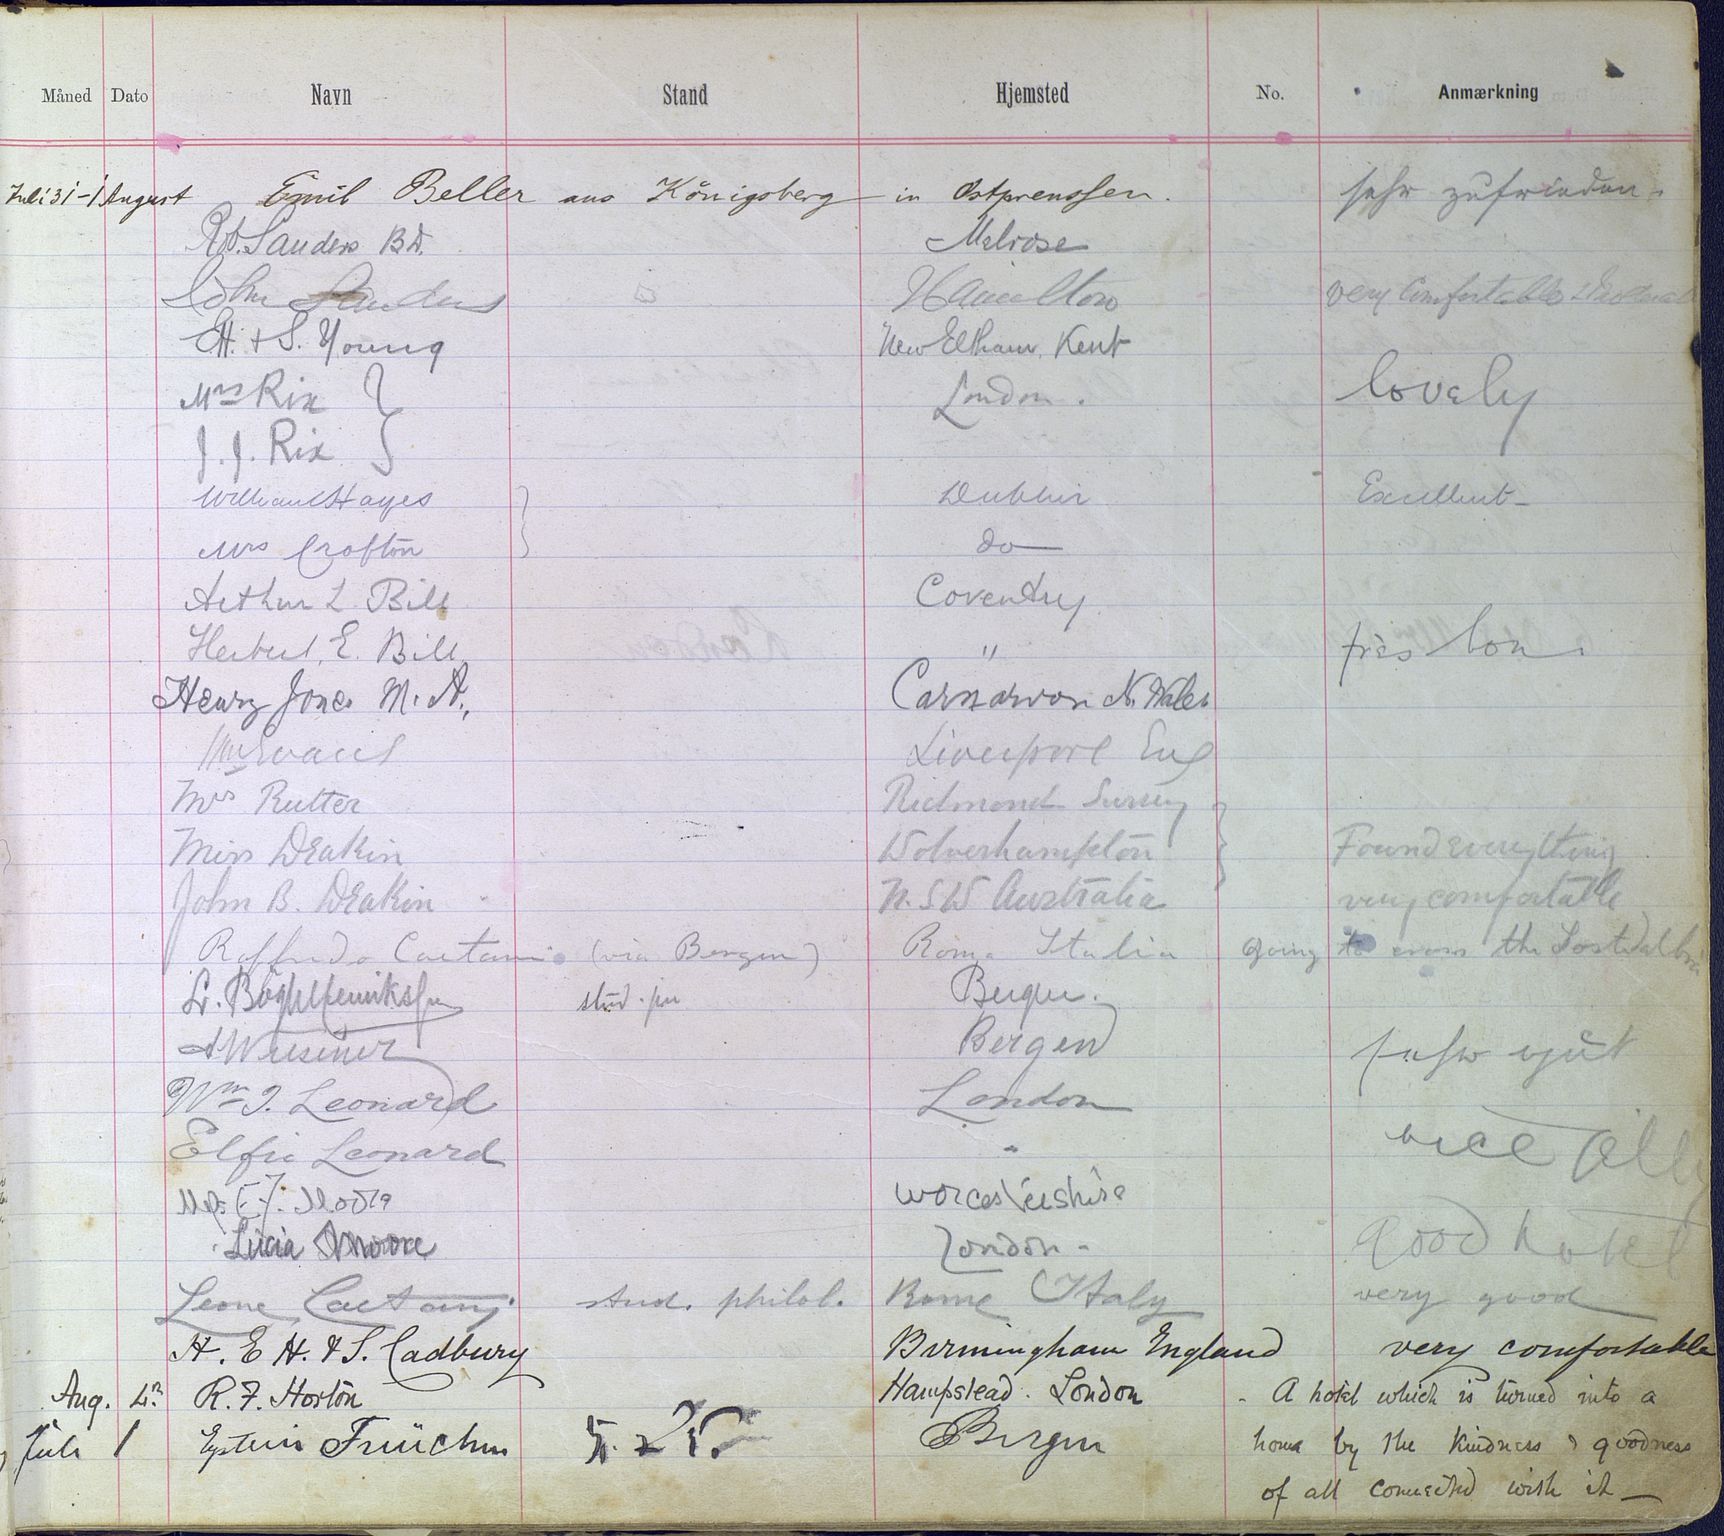 Måned Dato Navn Stand Hjemsted No. Anmærkning
Juli 31-1 August Emil Beller aus Königsberg in Ostpreussen. sehr zufrieden.
Rob. Sanders B.D. Melrose
John Sanders Hamilton very Comfortable &
H. + S. Young New Eltham, Kent
Mrs Rix } London. lovely
J. J. Rix
William Hayes } Dublin Excellent
Mrs Crofton do
Arthur L Bill Coventry
Herbert. E. Bill " très bon.
Henry Jones M.A., Carnarvon N. Wales
Evans Liverpool Eng
Mrs Rutter Richmond Surrey
Miss Deakin Wolverhampton } Found everything
John B. Deakin N. S W Australia very comfortable
Roffredo Caetani (via Bergen) Roma Italia going to cross the
stud. Bergen.
Bergen sehr gut
Wm J. Leonard London
Elfie Leonard " nice
Moore Worcestershire
Lucia Moore London - Good hotel
Leone Caetani stud. philol. Rome Italy very good
H. E H. & S. Cadbury Birmingham England very comfortable
Aug. 4. R. F. Horton Hampstead. London - A hotel which is turned into a
Juli 1 Bergen home by the kindness & goodness
of all connected with it —